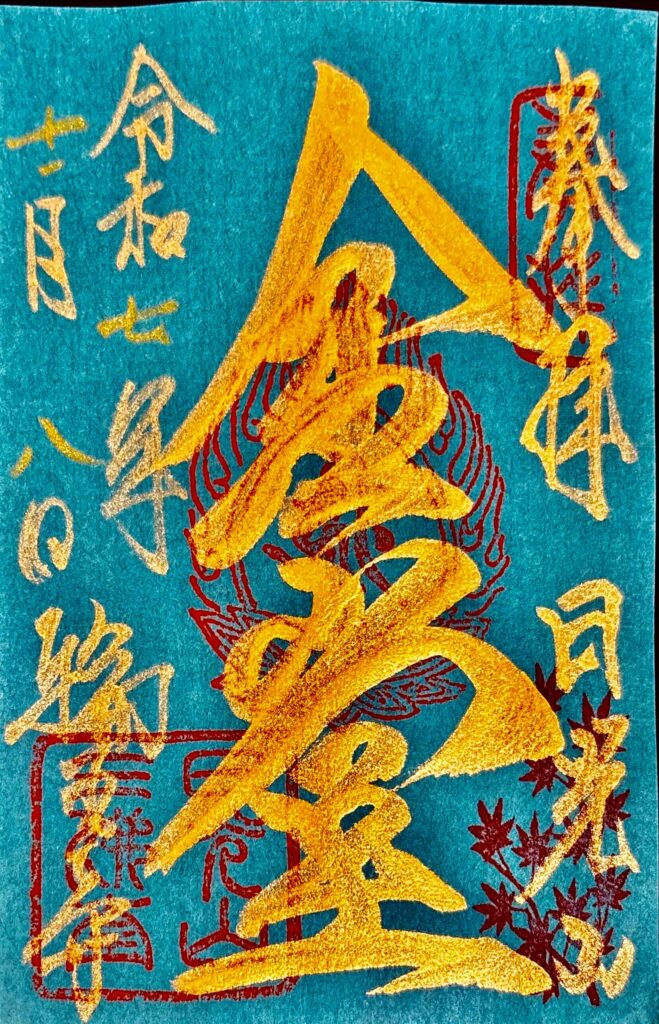 奉拝 日光山
金堂
令和七年
十二月八日
輪王寺
日光山